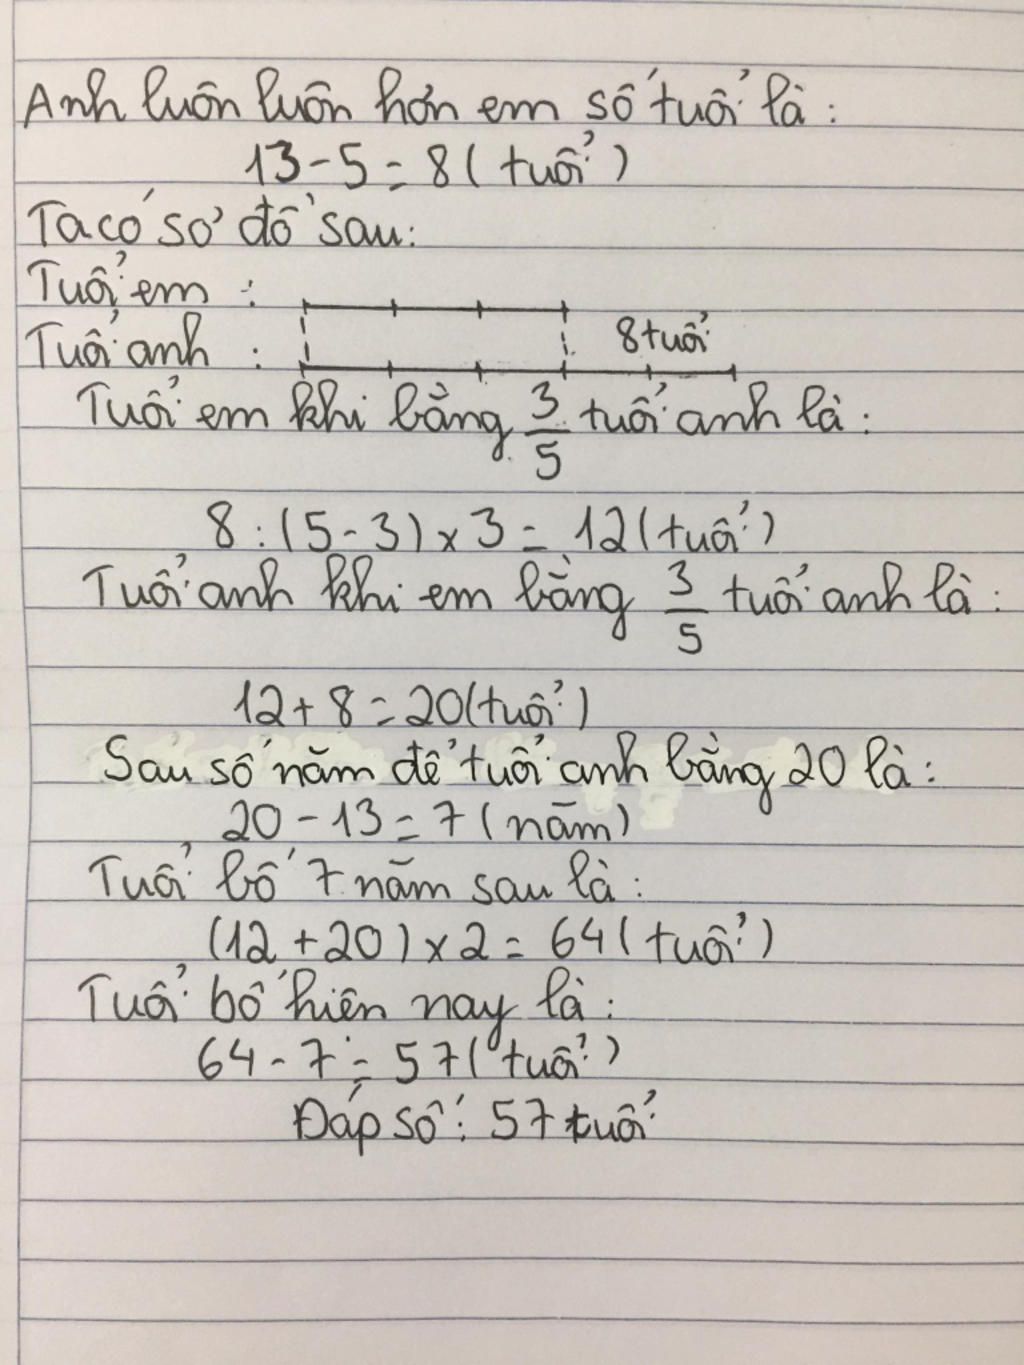 Anh luôn luôn hơn em số tuổi là:
13 - 5 = 8 (tuổi)
Ta có sơ đồ sau:
Tuổi em :
Tuổi anh : 8 tuổi
Tuổi em khi bằng 3/5 tuổi anh là:
8 : (5 - 3) x 3 = 12 (tuổi)
Tuổi anh khi em bằng 3/5 tuổi anh là:
12 + 8 = 20 (tuổi)
Sau số năm để tuổi anh bằng 20 là:
20 - 13 = 7 (năm)
Tuổi bố 7 năm sau là:
(12 + 20) x 2 = 64 (tuổi)
Tuổi bố hiện nay là:
64 - 7 = 57 (tuổi)
Đáp số: 57 tuổi